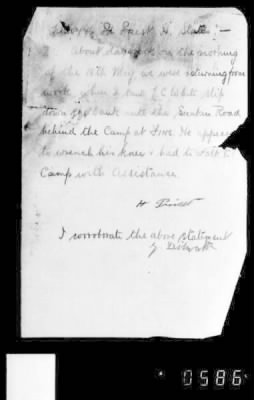 H. Priest H. States :-
About daybreak on the morning
of the 18th May we were returning from
work when I saw J.C. White slip
down the bank into the Sunken Road
behind the Camp at He appeared
to wrench his knee & had to to
Camp with assistance.
H Priest
I corroborate the above statement
0586